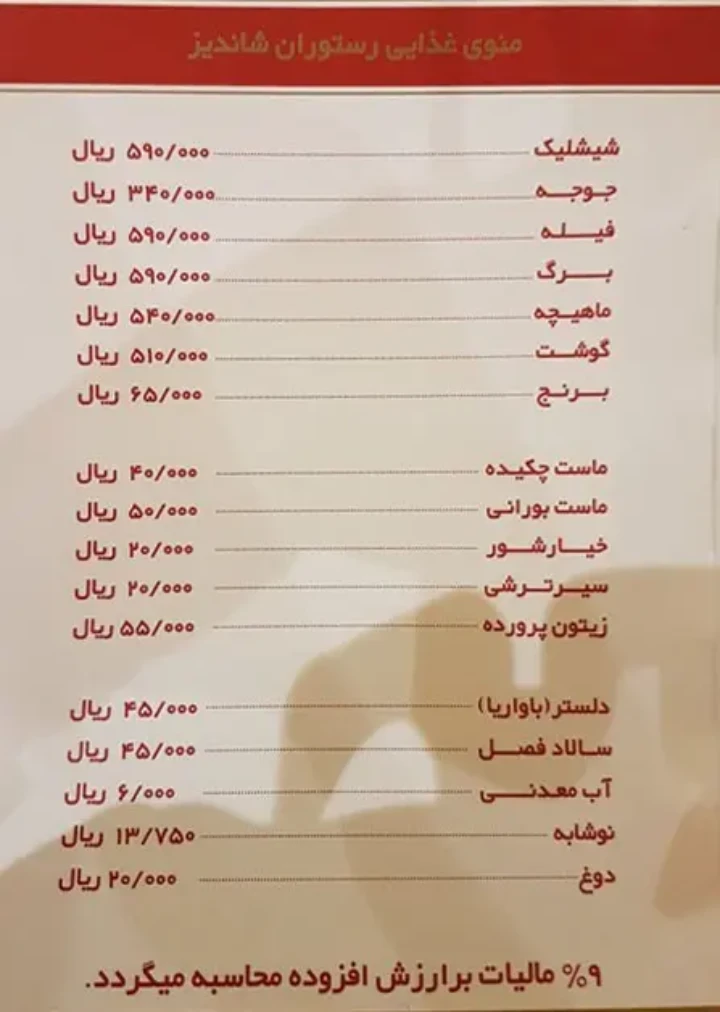 منوی غذایی رستوران شاندیز
شیشلیک ۵۹۰/۰۰۰ ریال
جوجه ۳۴۰/۰۰۰ ریال
فیله ۵۹۰/۰۰۰ ریال
برگ ۵۹۰/۰۰۰ ریال
ماهیچه ۵۴۰/۰۰۰ ریال
گوشت ۵۱۰/۰۰۰ ریال
برنج ۶۵/۰۰۰ ریال
ماست چکیده ۴۰/۰۰۰ ریال
ماست بورانی ۵۰/۰۰۰ ریال
خیارشور ۲۰/۰۰۰ ریال
سیرترشی ۲۰/۰۰۰ ریال
زیتون پرورده ۵۵/۰۰۰ ریال
دلستر(باواریا) ۴۵/۰۰۰ ریال
سالاد فصل ۴۵/۰۰۰ ریال
آب معدنی ۶/۰۰۰ ریال
نوشابه ۱۳/۷۵۰ ریال
دوغ ۲۰/۰۰۰ ریال
۹% مالیات برارزش افزوده محاسبه میگردد.